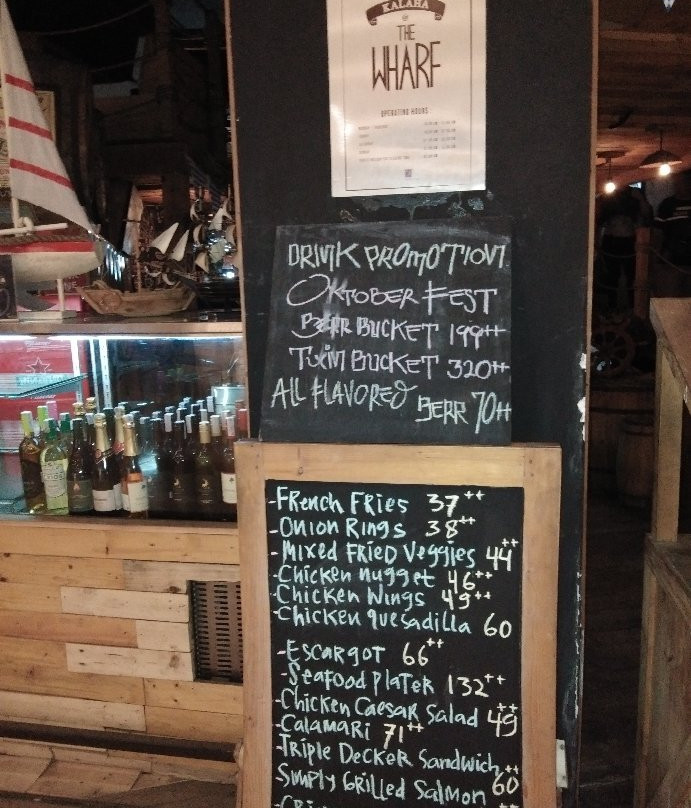 KALAHA
THE
WHARF
OPERATING HOURS
DRINK PROMOTION
OKTOBER FEST
BERR BUCKET 199++
TWIN BUCKET 320++
ALL FLAVORED
BERR 70++
-French Fries 37++
-Onion Rings 38++
-Mixed Fried Veggies 44++
-Chicken nugget 46++
-Chicken Wings 49++
-Chicken quesadilla 60
-Escargot 66++
-Seafood Plater 132++
-Chicken Caesar Salad 49++
-Calamari 71++
-Triple Decker Sandwich
Simply Grilled Salmon 60++